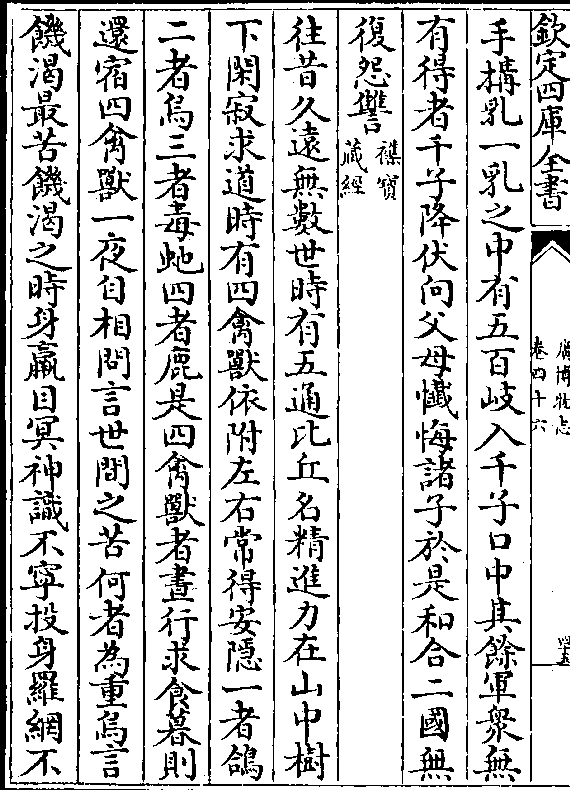 欽定四庫全書
廣博物志
卷四十六
手搆乳一乳之中有五百歧入千子口中其餘軍衆無
有得者千子降伏向父母懺悔諸子於是和合二國無
復怨讐
襍寶
藏經
往昔久遠無數世時有五通比丘名精進力在山中樹
下閑寂求道時有四禽獸依附左右常得安隱一者鴿
二者烏三者毒虵四者鹿是四禽獸者晝行求食暮則
還宿四禽獸一夜自相問言世間之苦何者為重烏言
饑渴最苦饑渴之時身羸目冥神識不寧投身羅網不